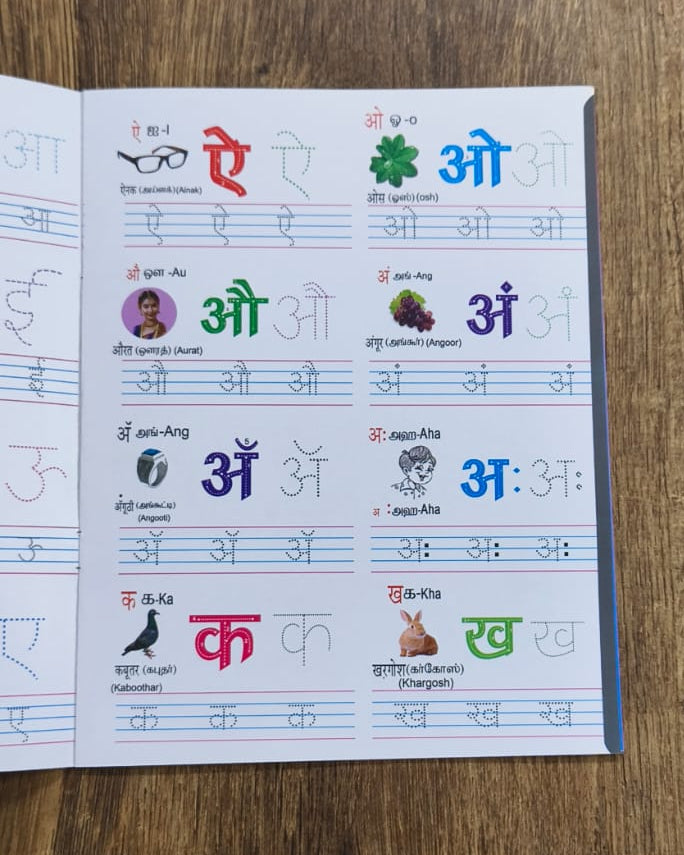 आ
आ
ई
ई
ऊ
ऊ
ए
ए
ऐ ஐ -I
ऐ ऐ
ऐनक (அய்னக்) (Ainak)
ऐ ऐ ऐ
ओ ஓ -o
ओ ओ
ओस (ஓஸ்) (osh)
ओ ओ ओ
औ ஔ -Au
औ औ
औरत (ஔரத்) (Aurat)
औ औ औ
अं அங் -Ang
अं अं
अंगूर (அங்கூர்) (Angoor)
अं अं अं
अँ அங் -Ang
5
अँ अँ
अँगूठी (அங்கூட்டி)
(Angooti)
अँ अँ अँ
अ: அஹ-Aha
अ: अ:
अ :அஹ-Aha
अ: अ: अ:
क க-Ka
क क
कबूतर (கபுதர்)
(Kaboothar)
क क क
ख க-Kha
ख ख
खरगोश(கர்கோஸ்)
(Khargosh)
ख ख ख